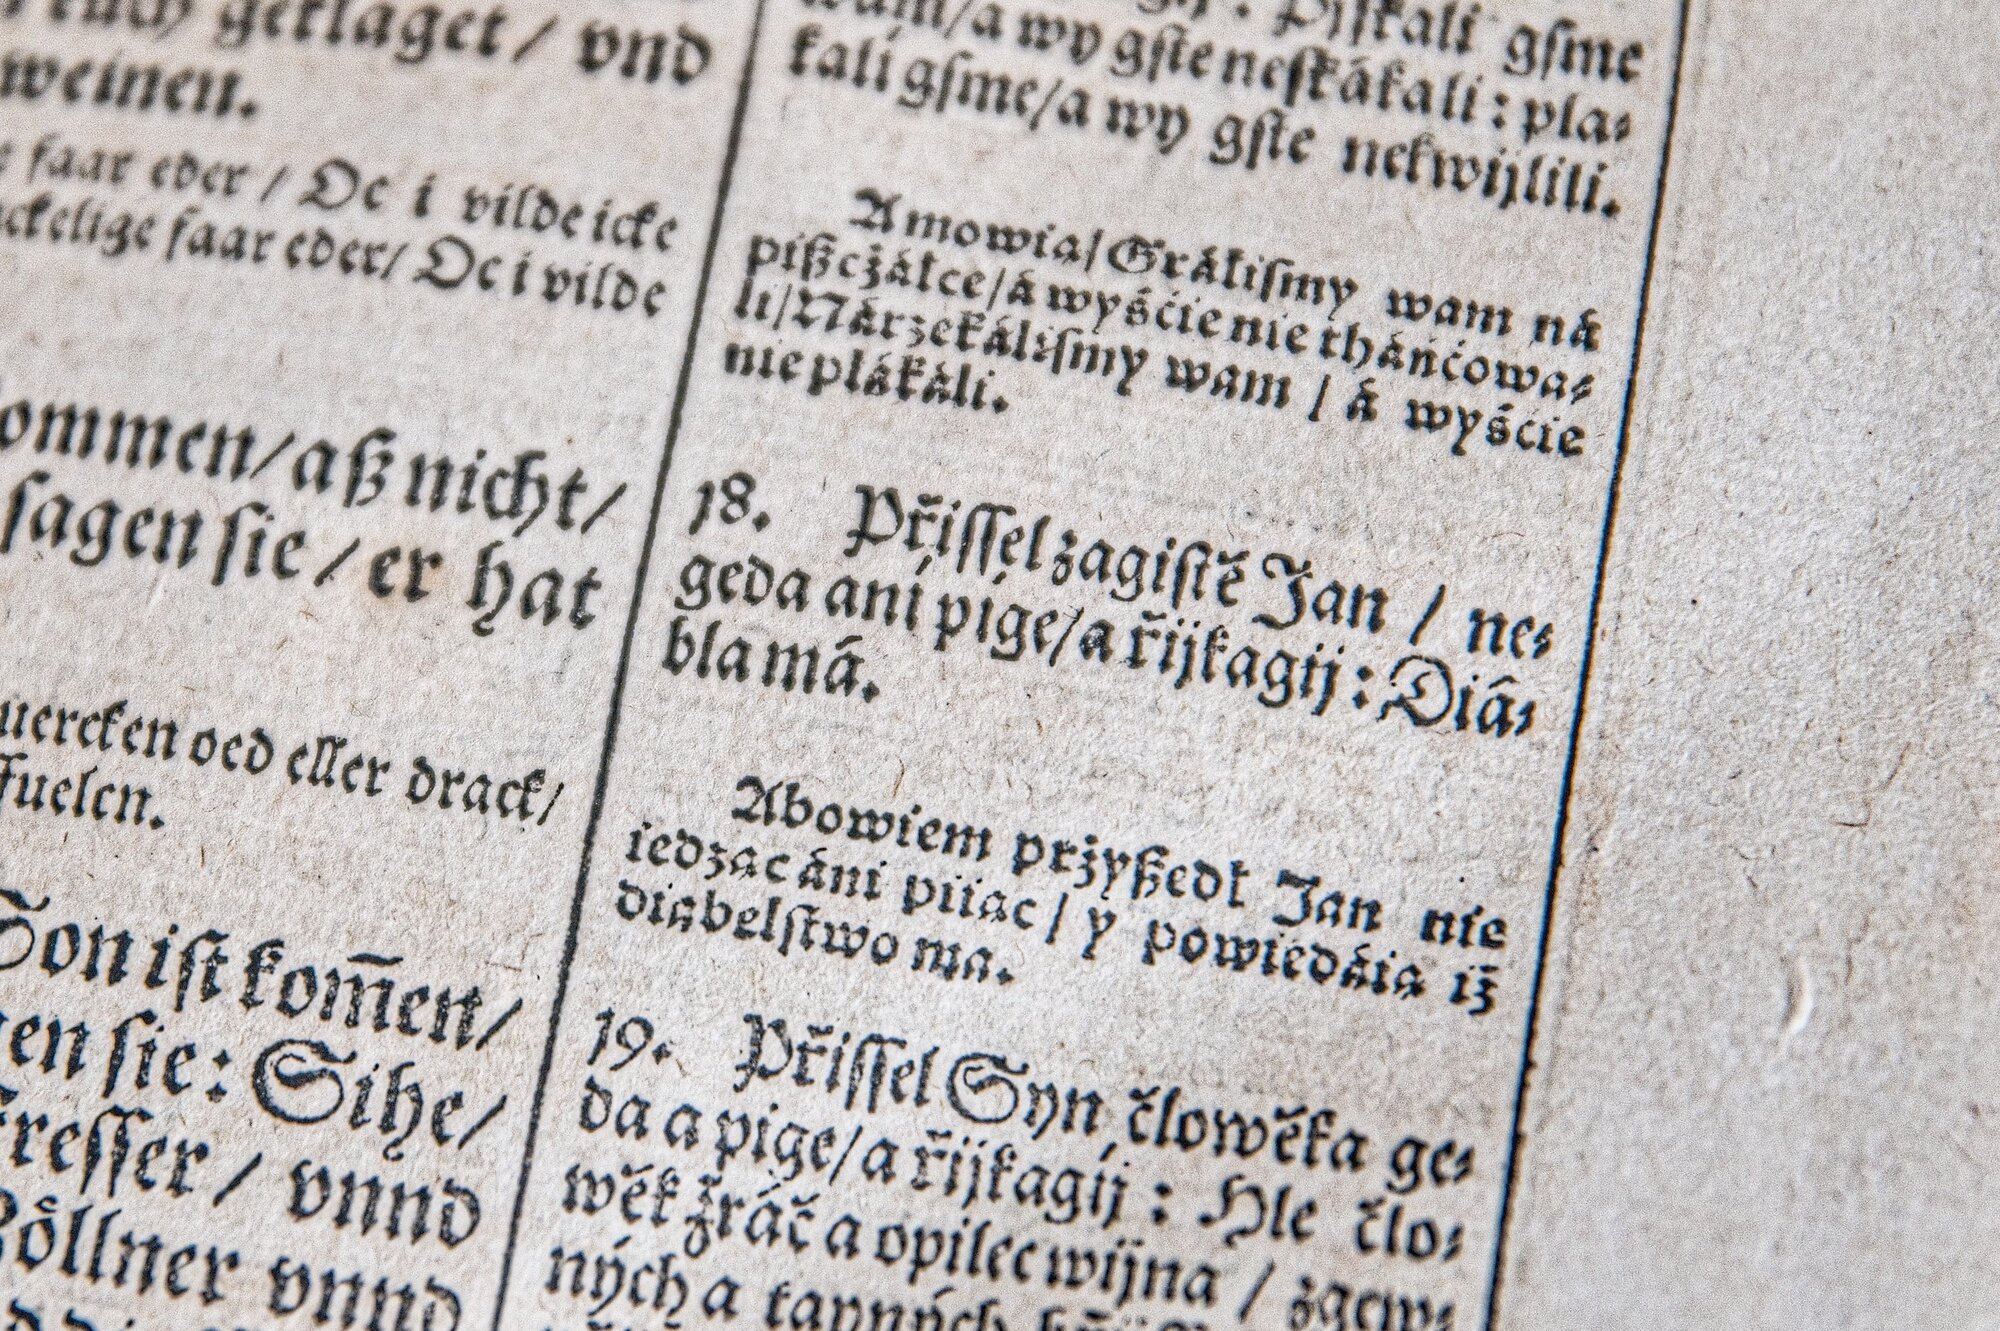 geklaget / vnd
weinen.
faar eder / Oc i vilde icke
ackelige faar eder / Oc i vilde
ommen / aß nicht /
ſagen ſie / er hat
uercken oed eller drack /
Fuelen.
Son iſt kom̃en /
en ſie: Sihe /
reſſer / vnnd
Zöllner vnnd
Pijſkali gſme
wám / a wy gſte neſkákali: pla⸗
kali gſme / a wy gſte nekwijlili.
A mowia / Gráliſmy wam ná
pißcżáłce / á wyśćie nie tháńcowa⸗
li / Nárzekáliſmy wam / á wyśćie
nie płákáli.
18. Přiſſel zagiſtě Jan / ne⸗
geda ani pige / a řijkagij: Diá⸗
bla má.
Abowiem prżyßedł Jan nie
iedząc áni piiąc / y powiedáią iż
diabelſtwo ma.
19. Přiſſel Syn člowěka ge⸗
da a pige / a řijkagij: Hle člo⸗
wěk žráč a opilec wijna / zgew⸗
ných a